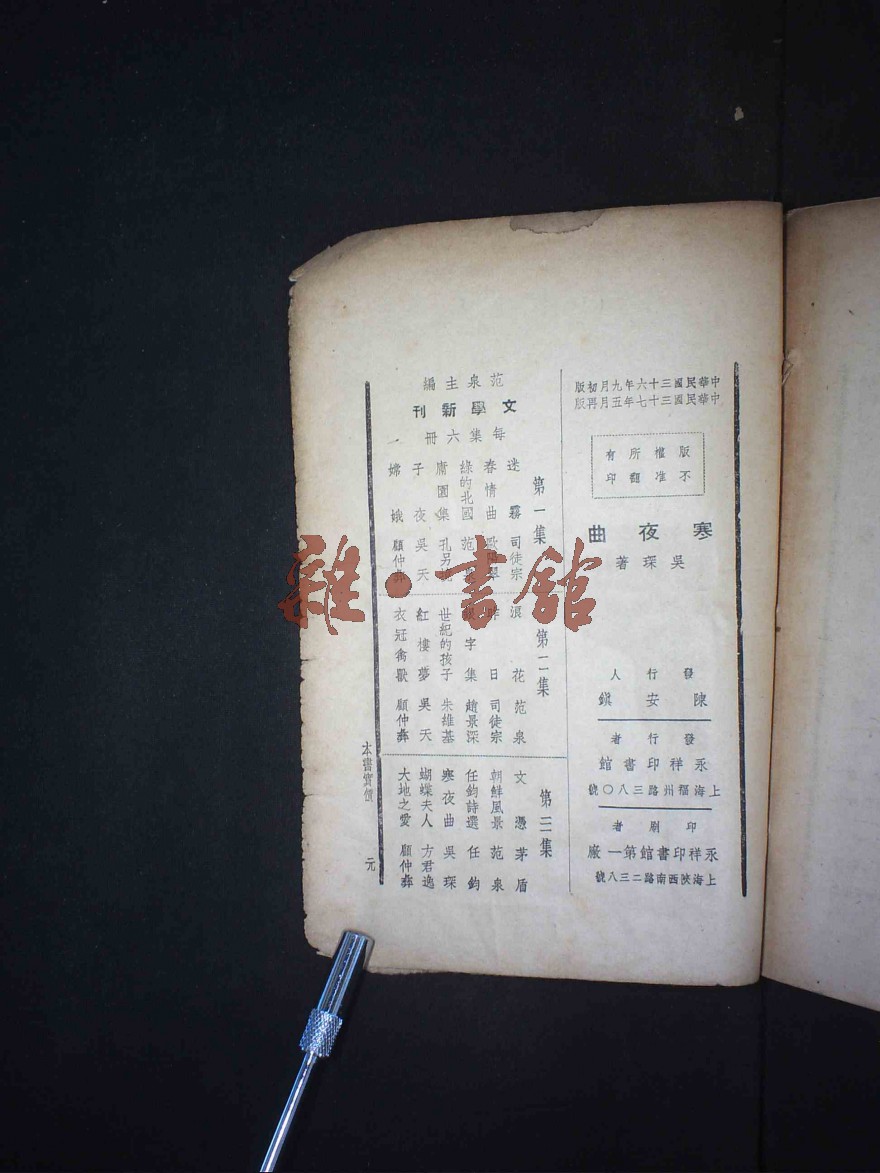 中華民國三十六年九月初版
中華民國三十七年五月再版
版權所有
不准翻印
寒夜曲
吳琛著
發行人
陳安鎮
發行者
永祥印書館
上海福州路三八〇號
印刷者
永祥印書館第一廠
上海陝西南路二三八號
范泉主編
文學新刊
每集六冊
第一集
迷霧 司徒宗
春情曲
綠的北國 范
庸園集 孔另
子夜 吳天
嫦娥 顧仲彝
第二集
浪花 范泉
日 司徒宗
字集 趙景深
世紀的孩子 朱維基
紅樓夢 吳天
衣冠禽獸 顧仲彝
第三集
文憑 茅盾
朝鮮風景 范泉
任鈞詩選 任鈞
寒夜曲 吳琛
蝴蝶夫人 方君逸
大地之愛 顧仲彝
本書實價 元
雜·書館